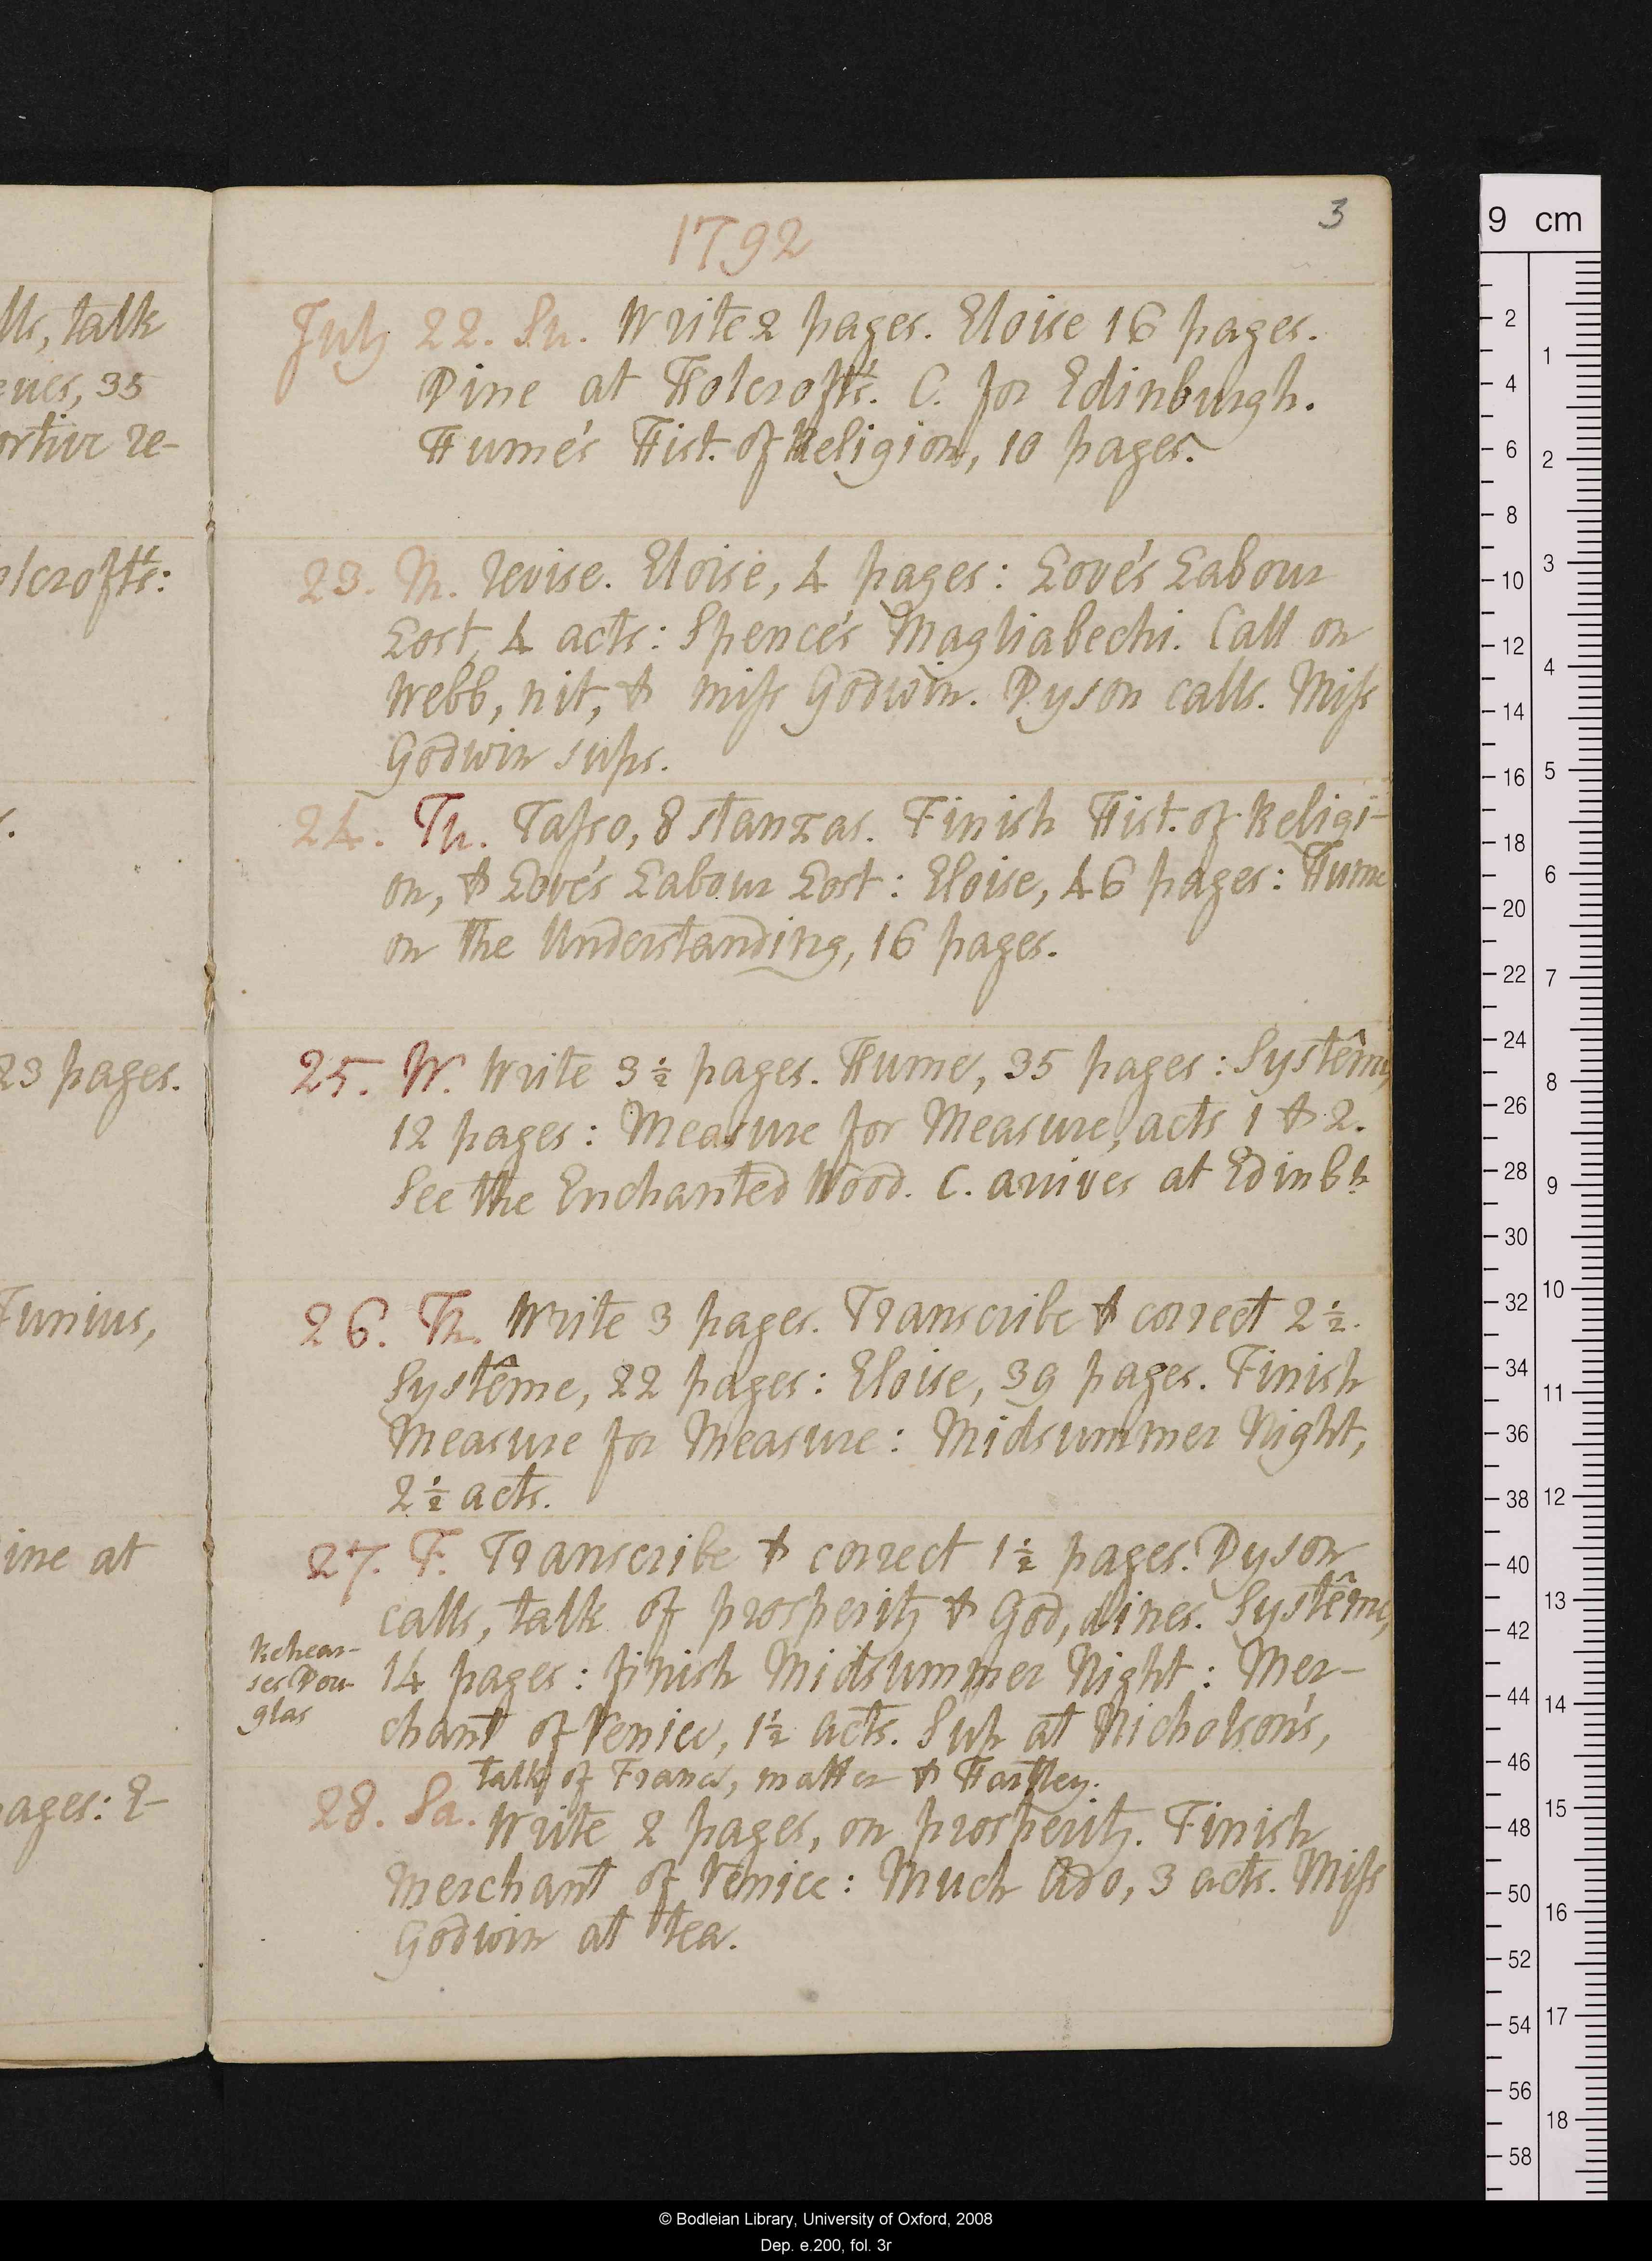 3
1792
July 22. Su. Write 2 pages. Eloise 16 pages.
Dine at Holcroft's. C. for Edinburgh.
Hume's Hist. of Religion, 10 pages.
23. M. revise. Eloise, 4 pages: Love's Labour
Lost, 4 acts: Spence's Magliabechi. Call on
Webb, nit, & miss Godwin. Dyson calls. Miss
Godwin sups.
24. Tu. Tasso, 8 stanzas. Finish Hist. of Religi-
on, & Love's Labour Lost: Eloise, 46 pages: Hume
on the Understanding, 16 pages.
25. W. Write 3 1/2 pages. Hume, 35 pages: Systême,
12 pages: Measure for Measure, acts 1 & 2.
See the Enchanted Wood. C. arrives at Edinbh
26. Th. Write 3 pages. Transcribe & correct 2 1/2.
Systême, 22 pages: Eloise, 39 pages. Finish
Measure for Measure: Midsummer Night,
2 1/2 acts.
27. F. Transcribe & correct 1 1/2 pages. Dyson
calls, talk of prosperity & God, dines. Systême,
14 pages: finish Midsummer Night: Mer-
chant of Venice, 1 1/2 acts. Sup at Nicholson's,
talk of France, matter & Hartley.
Rehear-
ses Dou-
glas
28. Sa. Write 2 pages, on prosperity. Finish
Merchant of Venice: Much Ado, 3 acts. Miss
Godwin at tea.
lls, talk
eves, 35
ortive re-
olcroft's:
s.
23 pages.
Junius,
ine at
ages: E-
9 cm
2
4
6
8
10
12
14
16
18
20
22
24
26
28
30
32
34
36
38
40
42
44
46
48
50
52
54
56
58
1
2
3
4
5
6
7
8
9
10
11
12
13
14
15
16
17
18
© Bodleian Library, University of Oxford, 2008
Dep. e.200, fol. 3r